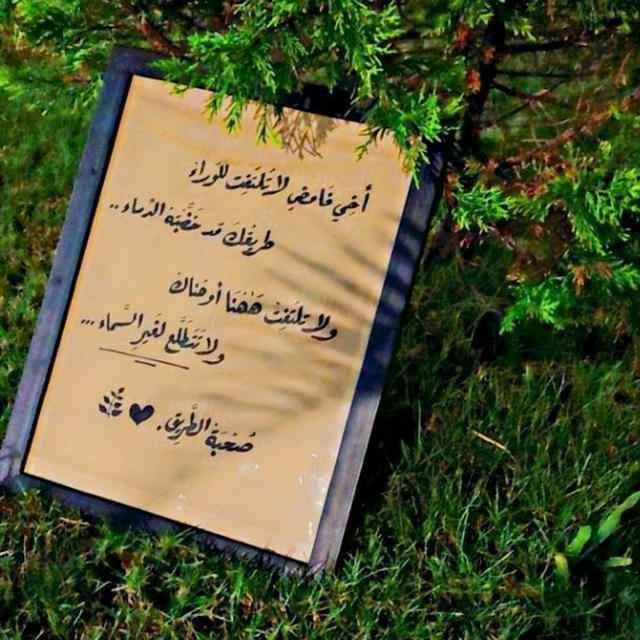 أخي فامضِ لا تَلتَفِت للوراء
طريقكَ قد خَضَّبَتهُ الدِّماء..
ولا تلتَفِت هَهُنا أو هناك
ولا تَتَطَلَّع لغَيرِ السَّماء...
صُحبَة الطَّريق.